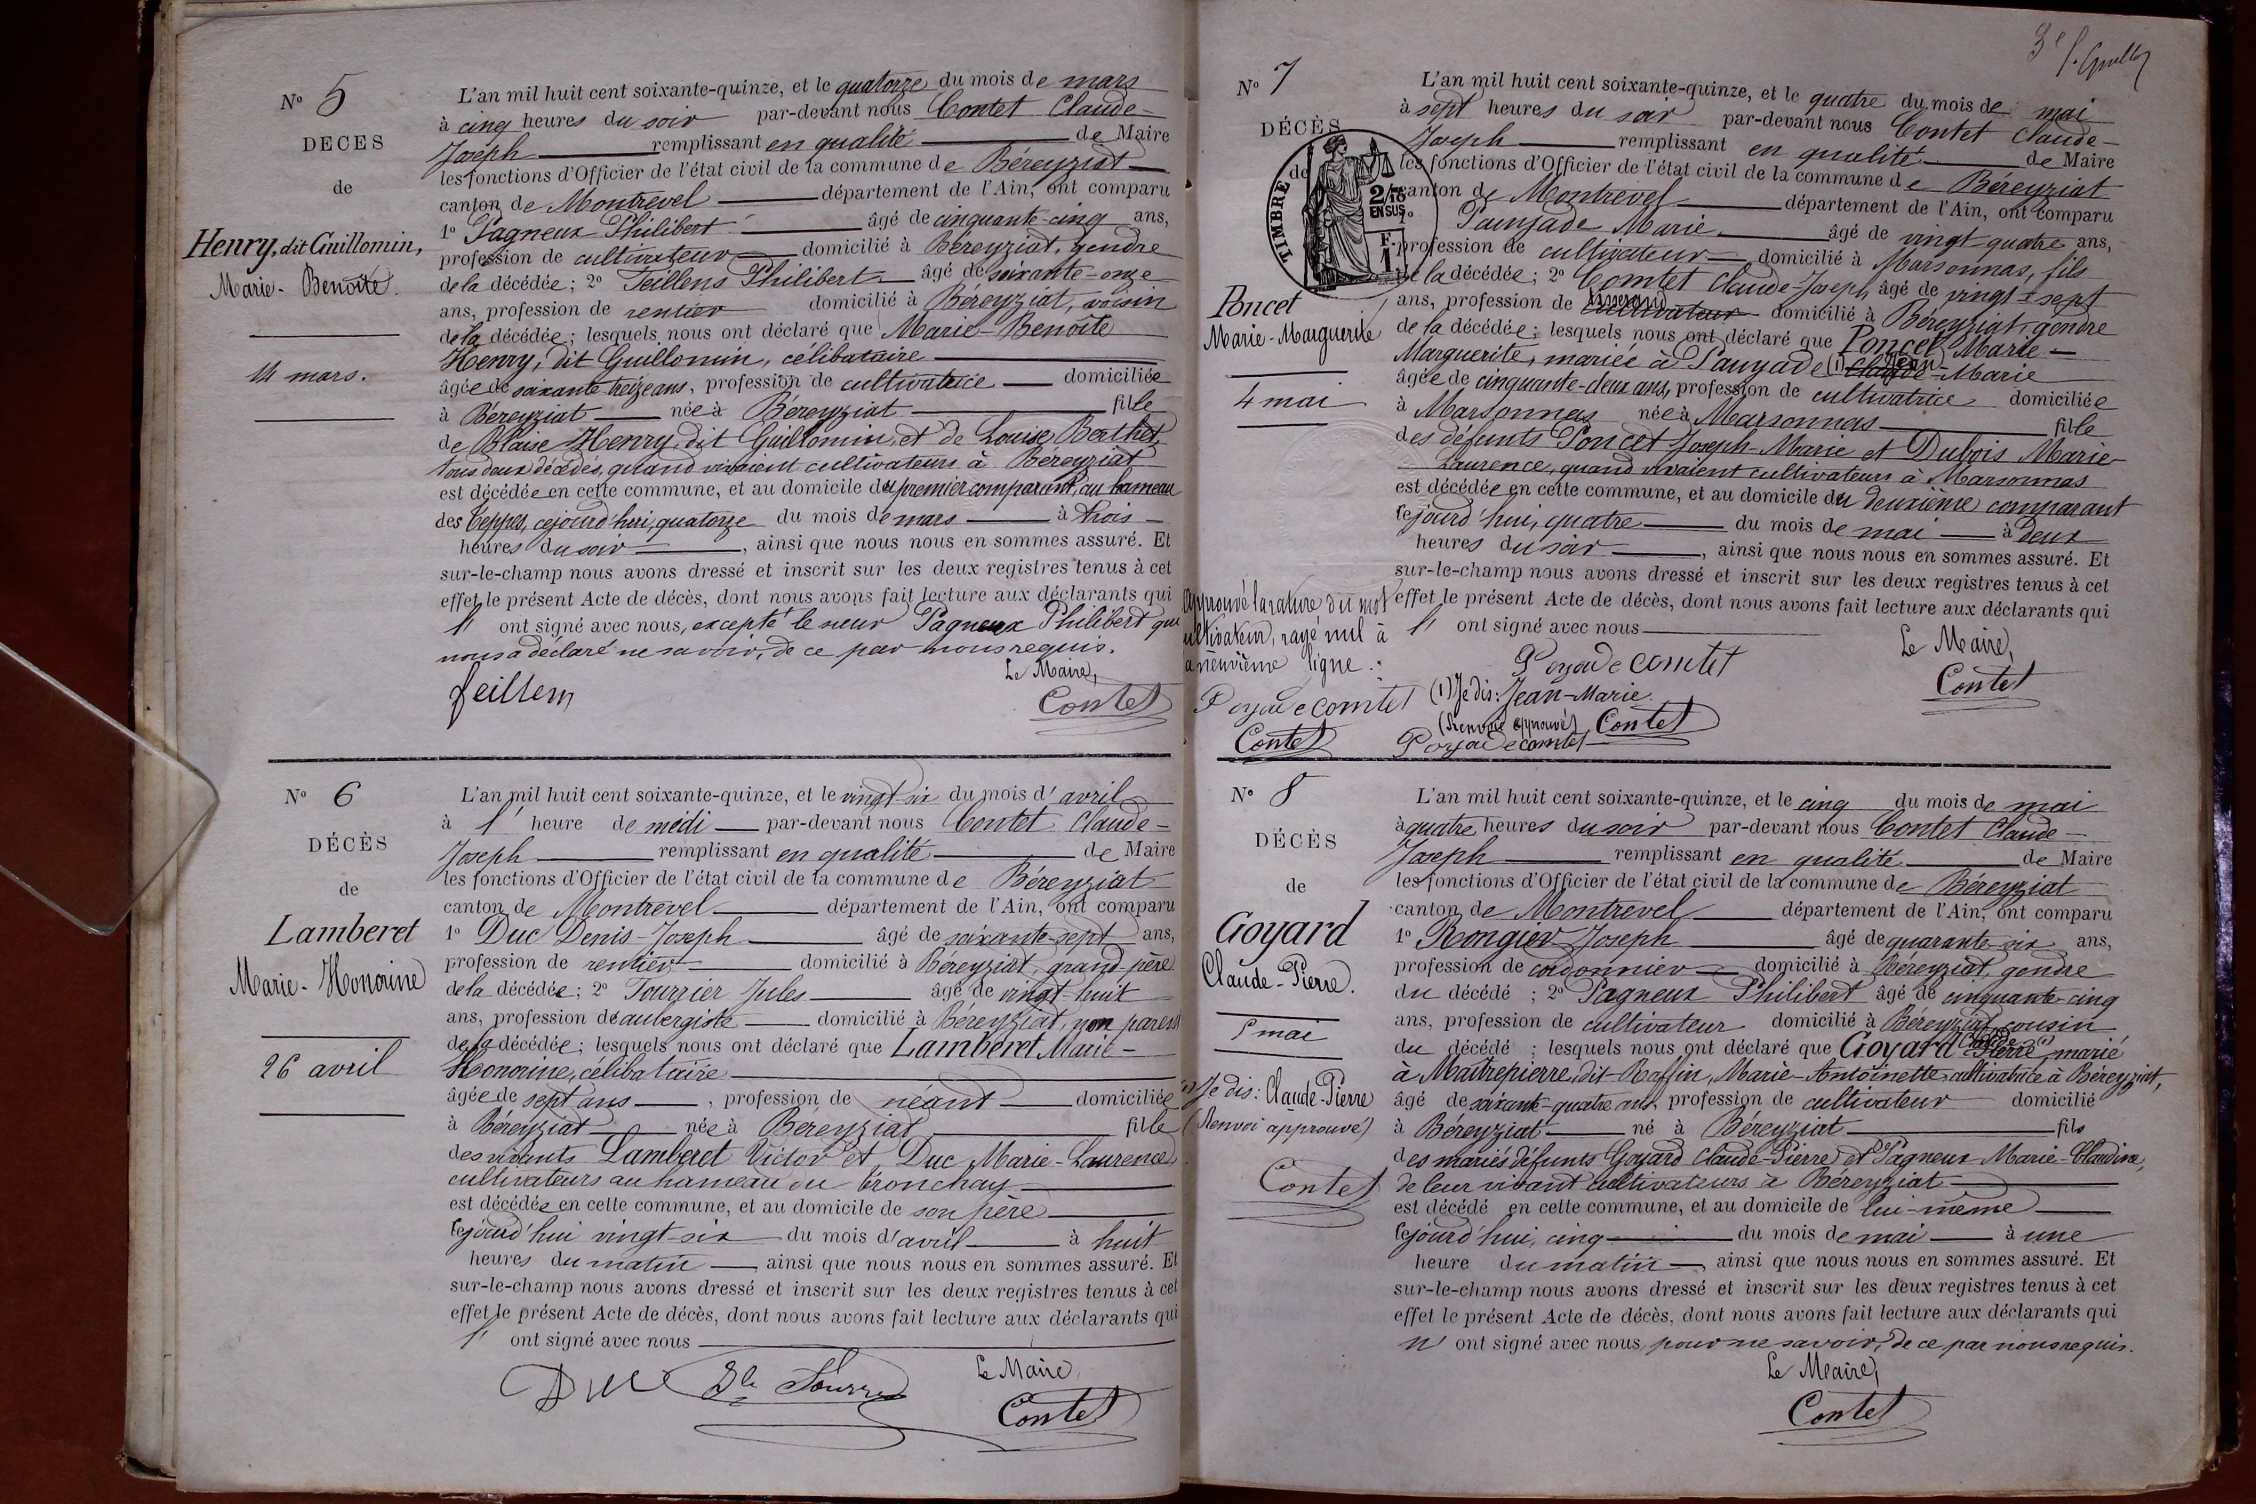 Nº 5
DÉCÈS
de
Henry, dit Guillomin,
Marie-Benoîte.
14 mars.
L'an mil huit cent soixante-quinze, et le quatorze du mois de mars
à cinq heures du soir par-devant nous Contet Claude-
Joseph remplissant en qualité de Maire
les fonctions d'Officier de l'état civil de la commune de Béreyziat
canton de Montrevel département de l'Ain, ont comparu
1º Pagneux Philibert âgé de cinquante-cinq ans,
profession de cultivateur domicilié à Béreyziat, gendre
de la décédée; 2º Teillens Philibert âgé de soixante-onze
ans, profession de rentier domicilié à Béreyziat, voisin
de la décédée; lesquels nous ont déclaré que Marie-Benoîte
Henry, dit Guillomin, célibataire
âgée de soixante treize ans, profession de cultivatrice domiciliée
à Béreyziat née à Béreyziat fille
de Blaise Henry, dit Guillomin, et de Louise Berthet,
tous deux décédés, quand vivaient cultivateurs à Béreyziat
est décédée en cette commune, et au domicile du premier comparant, au hameau
des Teppes, cejourd'hui, quatorze du mois de mars à trois
heures du soir, ainsi que nous nous en sommes assuré. Et
sur-le-champ nous avons dressé et inscrit sur les deux registres tenus à cet
effet le présent Acte de décès, dont nous avons fait lecture aux déclarants qui
l' ont signé avec nous, excepté le sieur Pagneux Philibert qui
nous a déclaré ne savoir, de ce par nous requis.
Le Maire,
feillem
Contet
Nº 6
DÉCÈS
de
Lamberet
Marie-Honorine
26 avril
L'an mil huit cent soixante-quinze, et le vingt-six du mois d'avril
à 1 heure de médi par-devant nous Contet Claude-
Joseph remplissant en qualité de Maire
les fonctions d'Officier de l'état civil de la commune de Béreyziat
canton de Montrevel département de l'Ain, ont comparu
1º Duc Denis-Joseph âgé de soixante-sept ans,
profession de rentier domicilié à Béreyziat, grand-père
de la décédée; 2º Tournier Jules âgé de vingt-huit
ans, profession d'aubergiste domicilié à Béreyziat, non parent
de la décédée; lesquels nous ont déclaré que Lamberet Marie-
Honorine, célibataire
âgée de sept ans, profession de néant domiciliée
à Béreyziat née à Béreyziat fille
des vivants Lamberet Victor et Duc Marie-Laurence
cultivateurs au hameau du tronchay
est décédée en cette commune, et au domicile de son père
cejourd'hui vingt-six du mois d'avril à huit
heures du matin, ainsi que nous nous en sommes assuré. Et
sur-le-champ nous avons dressé et inscrit sur les deux registres tenus à cet
effet le présent Acte de décès, dont nous avons fait lecture aux déclarants qui
l' ont signé avec nous
Le Maire,
Duc
Contet
Nº 7
DÉCÈS
de
TIMBRE
2/10
EN SUS.
Poncet
Marie-Marguerite
4 mai
L'an mil huit cent soixante-quinze, et le quatre du mois de mai
à sept heures du soir par-devant nous Contet Claude-
Joseph remplissant en qualité de Maire
les fonctions d'Officier de l'état civil de la commune de Béreyziat
canton de Montrevel département de l'Ain, ont comparu
Pauyade Marie âgé de vingt quatre ans,
profession de cultivateur domicilié à Marsonnas, fils
de la décédée; 2º Comtet Claude-Joseph âgé de vingt-sept
ans, profession de tisserand cultivateur domicilié à Béreyziat, gendre
de la décédée; lesquels nous ont déclaré que Poncet Marie-
Marguerite, mariée à Pauyade (1) Claude Jean-Marie
âgée de cinquante-deux ans, profession de cultivatrice domiciliée
à Marsonnas née à Marsonnas fille
des défunts Poncet Joseph-Marie et Dubois Marie
Laurence, quand vivaient cultivateurs à Marsonnas
est décédée en cette commune, et au domicile du deuxième comparant
cejourd'hui, quatre du mois de mai à deux
heures du soir, ainsi que nous nous en sommes assuré. Et
sur-le-champ nous avons dressé et inscrit sur les deux registres tenus à cet
effet le présent Acte de décès, dont nous avons fait lecture aux déclarants qui
l' ont signé avec nous
Approuvé la rature du mot
cultivateur, rayé nul à
la neuvième ligne.
Poyade comtet
Contet
Le Maire,
Poyade comtet
Contet
(1) Je dis: Jean-Marie.
(Renvoi approuvé) Contet
Poyade comtet
Nº 8
DÉCÈS
de
Goyard
Claude-Pierre.
5 mai
(1) Je dis: Claude-Pierre
(Renvoi approuvé)
Contet
L'an mil huit cent soixante-quinze, et le cinq du mois de mai
à quatre heures du soir par-devant nous Contet Claude-
Joseph remplissant en qualité de Maire
les fonctions d'Officier de l'état civil de la commune de Béreyziat
canton de Montrevel département de l'Ain, ont comparu
1º Rongier Joseph âgé de quarante-six ans,
profession de cordonnier domicilié à Béreyziat, gendre
du décédé; 2º Pagneux Philibert âgé de cinquante-cinq
ans, profession de cultivateur domicilié à Béreyziat, cousin
du décédé; lesquels nous ont déclaré que Goyard Claude Pierre (1) marié
à Maîtrepierre, dit Raffin, Marie-Antoinette cultivatrice à Béreyziat,
âgé de soixante-quatre ans, profession de cultivateur domicilié
à Béreyziat né à Béreyziat fils
des mariés défunts Goyard Claude-Pierre et Pagneux Marie-Claudine,
de leur vivant cultivateurs à Béreyziat
est décédé en cette commune, et au domicile de lui-même
cejourd'hui, cinq du mois de mai à une
heure du matin, ainsi que nous nous en sommes assuré. Et
sur-le-champ nous avons dressé et inscrit sur les deux registres tenus à cet
effet le présent Acte de décès, dont nous avons fait lecture aux déclarants qui
n' ont signé avec nous, pour ne savoir, de ce par nous requis.
Le Maire,
Contet